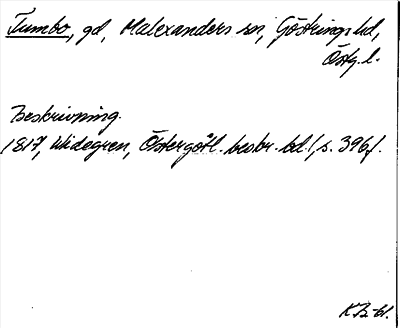 Tumbo, gd, Malexanders sn, Göstrings hd,
Östg. l.
Beskrivning.
1817, Widegren, Östergötl. beskr. bd. 1, s. 396 f.
KB-bl.